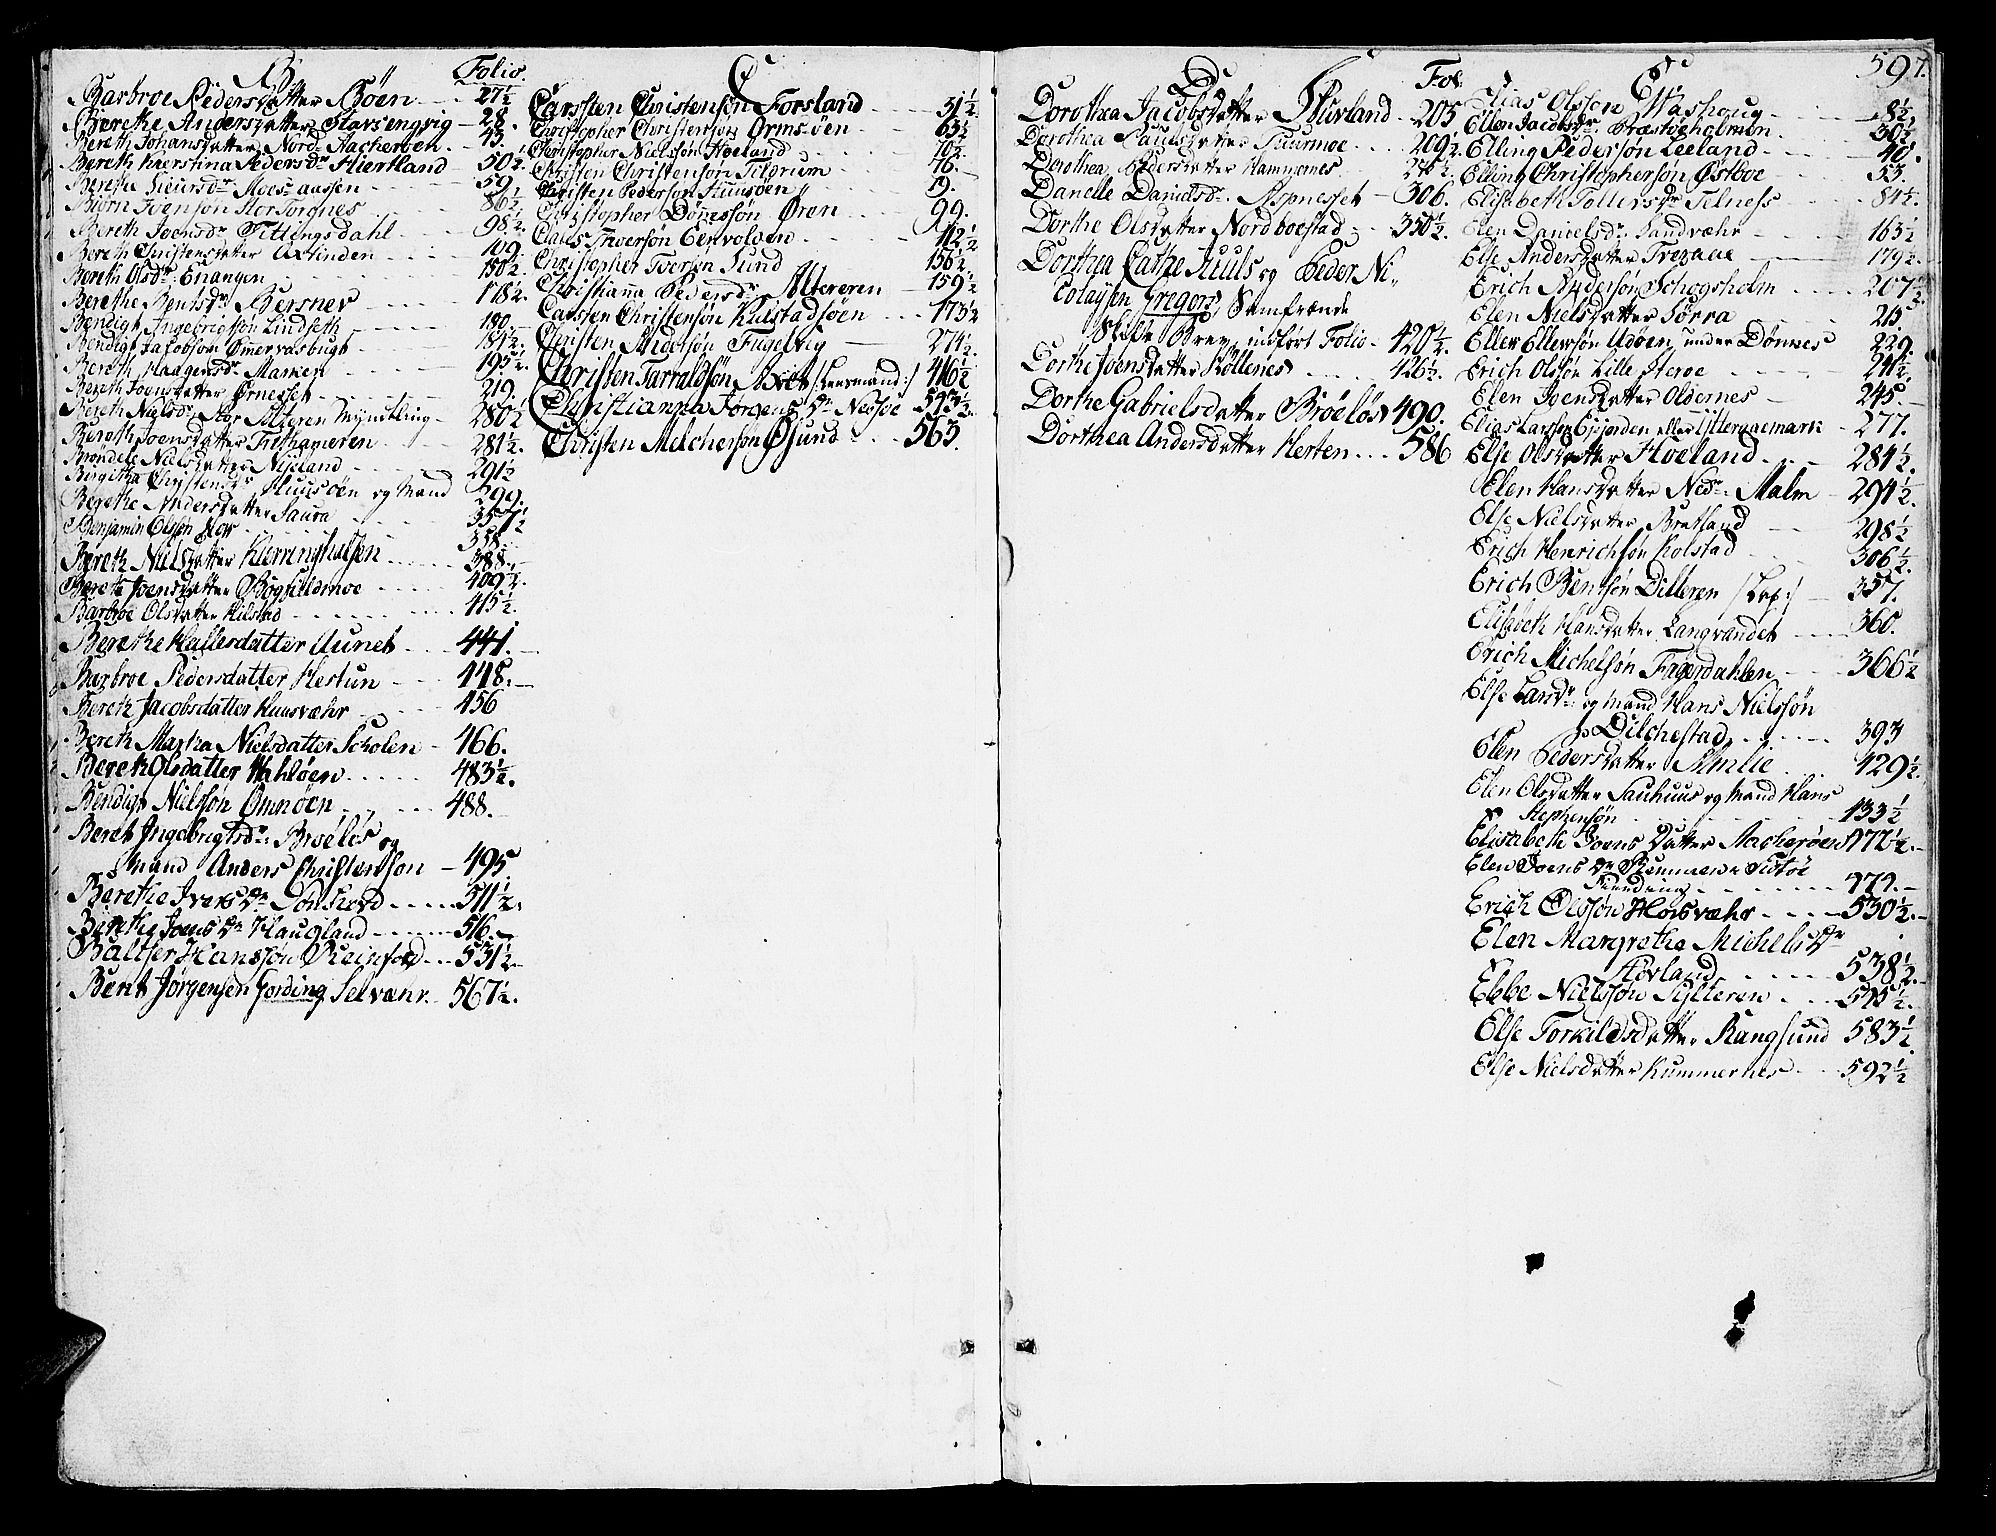 B Folio.
Barbroe Pedersdatter Böen 27½
Berethe Andersdatter Slavsengvig 28.
Bereth Johansdatter Nord Aacheröen 43.
Bereth Kierstina Pedersdr. Hiertland 50½
Bereth Siursdr. Moes-aasen 59.
Biörn Joensön Stor Torgnes 86½
Bereth Joensdr. Tettingsdahl 98½
Bereth Christensdatter Axtinden 109
Bereth Olsdr. Enangen 150½
Berethe Bentsdr. Bersner 178½
Bendigt Ingebrigtsön Lindseth 180
Bendigt Jacobsön Ömmervasbugt 184½
Bereth Haagensdr. Marken 195½
Bereth Joensdatter Örnesset 219.
Bereth Nielsdr. Stor Alteren Myndtling 280½
Bereth Joensdatter Trethameren 281½
Brondele Nielsdatter Nyeland 291½
Birgitha Christensdr Huusöen og Mand 299.
Berethe Andersdatter Saura 357½
Benjamin Olssön Moe 358.
Bereth Nielsdatter Kierringhalsen 388.
Bereth Joensdatter Bogfieldmoe 409½
Barbroe Olsdatter Hilstad 415½
Berethe Hallesdatter Aunet 441.
Barbroe Pedersdatter Hestun 448.
Bereth Jacobsdatter Huusvæhr 456
Bereth Martha Nielsdatter Scholen 466.
Bereth Olsdatter Kahlöen 483½.
Bendigt Nielssön Omnöen 488.
Beret Ingebrigtsdr: Broelös og
Mand Anders Christensön 495
Berethe Ivers Dr DönSeed 511½.
Birethe Joens Dr Haugland 516.
Baltser Hanssön Reinford 531½
Berit Jörgensen Gording Selvæhr 567½.
C
Carsten Christensön Forsland 31½
Christopher Christensön Ormsöen 63½
Christopher Nielssön Hoeland 70½
Christen Christensön Tilgrum 76.
Christen Pedersön Huusöen 79.
Christopher Dönnessön Øren 99.
Claus Iversön Gervolden 112½
Christopher Iversön Sund 156½
Christianna Pedersdr. Alteren 159½
Carsten Christensön Kulstadsöen 173½
Christen Andersön Fugelvig 274½
Christen Tarraldsön Axvet /:Leersmand:/ 416½
Christianna Jörgens Dr Nessöe 543½
Christen Melchersön Øsund 563.
D Fol
Dorothea Jacobsdatter Skivland 205
Dorothea Paulsdatter Fuurmoe 209½
Dorothea Pedersdatter Hamnernes 276½
Danelle Danielsdr. Aspnesset 306.
Dorthe Olsdatter Nordboestad 350½.
Dorthea Cathe Juuls og Peder Ni-
colaysen Gregors Samfrænde
Skifte Brev, indfört Folio 420½.
Dorthe Joensdatter Kollenes 426½.
Dorthe Gabrielsdatter Bröelös 490.
Dorthea Andersdatter Herten 586
597.
E
Elias Olsson Washoug 8½
Ellen Jacobsdr. Præstöeholmen 30½
Elling Pedersön Leeland 40.
Elling Christophersön Østboe 53.
Elisabeth Tollersdr Telness 84½
Elen Danielsdr. Sandvæhr 163½
Else Andersdatter Trezaae 179½
Erich Andersön Schogsholm 207½
Elen Nielsdatter Sörra 215
Eller Ellersön Udöen under Dönnes 229.
Erich Olssön Lille Steroe 241½
Elen Joensdatter Oldernes 245.
Elias Larssön Esjorden eller Ytteraaemark 277.
Else Olsdatter Hoeland 284½.
Elen Hansdatter Nedr. Malm 294½.
Else Nielsdatter Bratland 298½
Erich Henrichsön Kolstad 306½.
Erich Bentsön Dilleren /:Lap:/ 357.
Elisabeth Hansdatter Langvandet 360.
Erich Michelsön Fagerdahlen 366½
Else Larsdr. og Mand Hans Nielssön
Dilchestad 393
Elen Pedersdatter Almlie 429½
Elen Olsdatter Sauhuus og Mand Hans
Stephensön 433½
Elisabeth Joens Datter Aacheröen 472½.
Elen Joens Dr Remmen Titöe
479.
Erich Olssön Hosvæhr 530½.
Elen Margrethe Michels Dr
Hövland 538½
Ebbe Nielssön Sylteren 545½.
Else Torkildsdatter Rangsund 583½
Else Nielsdatter Kummernes 592½